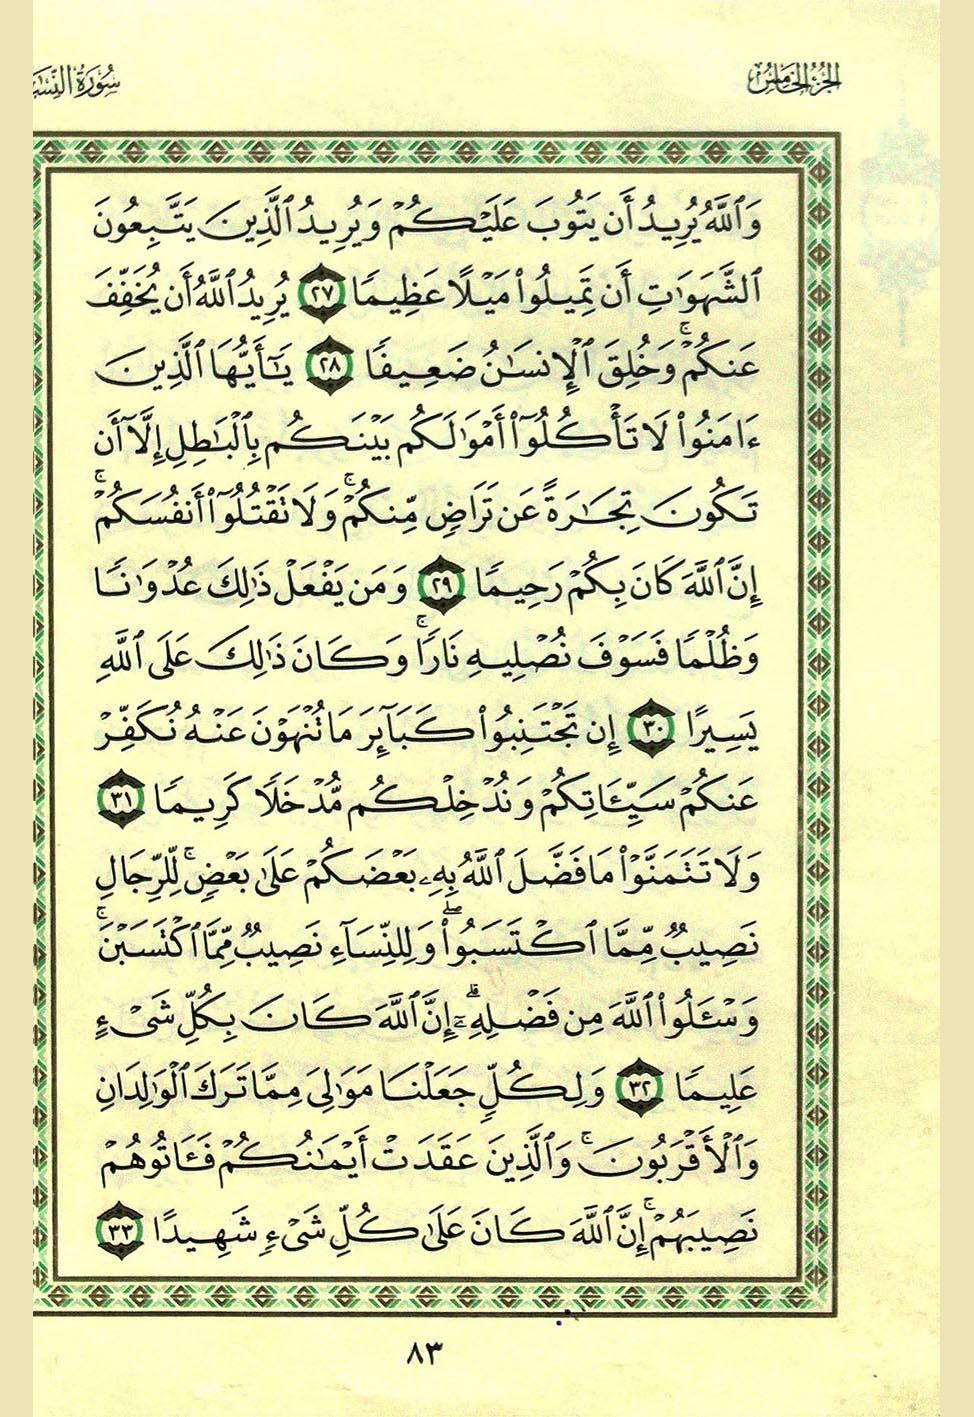 الجزء الخامس
سورة النسا
وَٱللَّهُ يُرِيدُ أَن يَتُوبَ عَلَيْكُمْ وَيُرِيدُ ٱلَّذِينَ يَتَّبِعُونَ
ٱلشَّهَوَٰتِ أَن تَمِيلُوا۟ مَيْلًا عَظِيمًا ٢٧ يُرِيدُ ٱللَّهُ أَن يُخَفِّفَ
عَنكُمْ ۚ وَخُلِقَ ٱلْإِنسَٰنُ ضَعِيفًا ٢٨ يَٰٓأَيُّهَا ٱلَّذِينَ
ءَامَنُوا۟ لَا تَأْكُلُوٓا۟ أَمْوَٰلَكُم بَيْنَكُم بِٱلْبَٰطِلِ إِلَّآ أَن
تَكُونَ تِجَٰرَةً عَن تَرَاضٍ مِّنكُمْ ۚ وَلَا تَقْتُلُوٓا۟ أَنفُسَكُمْ ۚ
إِنَّ ٱللَّهَ كَانَ بِكُمْ رَحِيمًا ٢٩ وَمَن يَفْعَلْ ذَٰلِكَ عُدْوَٰنًا
وَظُلْمًا فَسَوْفَ نُصْلِيهِ نَارًا ۚ وَكَانَ ذَٰلِكَ عَلَى ٱللَّهِ
يَسِيرًا ٣٠ إِن تَجْتَنِبُوا۟ كَبَآئِرَ مَا تُنْهَوْنَ عَنْهُ نُكَفِّرْ
عَنكُمْ سَيِّـَٔاتِكُمْ وَنُدْخِلْكُم مُّدْخَلًا كَرِيمًا ٣١
وَلَا تَتَمَنَّوْا۟ مَا فَضَّلَ ٱللَّهُ بِهِۦ بَعْضَكُمْ عَلَىٰ بَعْضٍ ۚ لِّلرِّجَالِ
نَصِيبٌ مِّمَّا ٱكْتَسَبُوا۟ ۖ وَلِلنِّسَآءِ نَصِيبٌ مِّمَّا ٱكْتَسَبْنَ ۚ
وَسْـَٔلُوا۟ ٱللَّهَ مِن فَضْلِهِۦٓ ۗ إِنَّ ٱللَّهَ كَانَ بِكُلِّ شَىْءٍ
عَلِيمًا ٣٢ وَلِكُلٍّ جَعَلْنَا مَوَٰلِىَ مِمَّا تَرَكَ ٱلْوَٰلِدَانِ
وَٱلْأَقْرَبُونَ ۚ وَٱلَّذِينَ عَقَدَتْ أَيْمَٰنُكُمْ فَـَٔاتُوهُمْ
نَصِيبَهُمْ ۚ إِنَّ ٱللَّهَ كَانَ عَلَىٰ كُلِّ شَىْءٍ شَهِيدًا ٣٣
٨٣